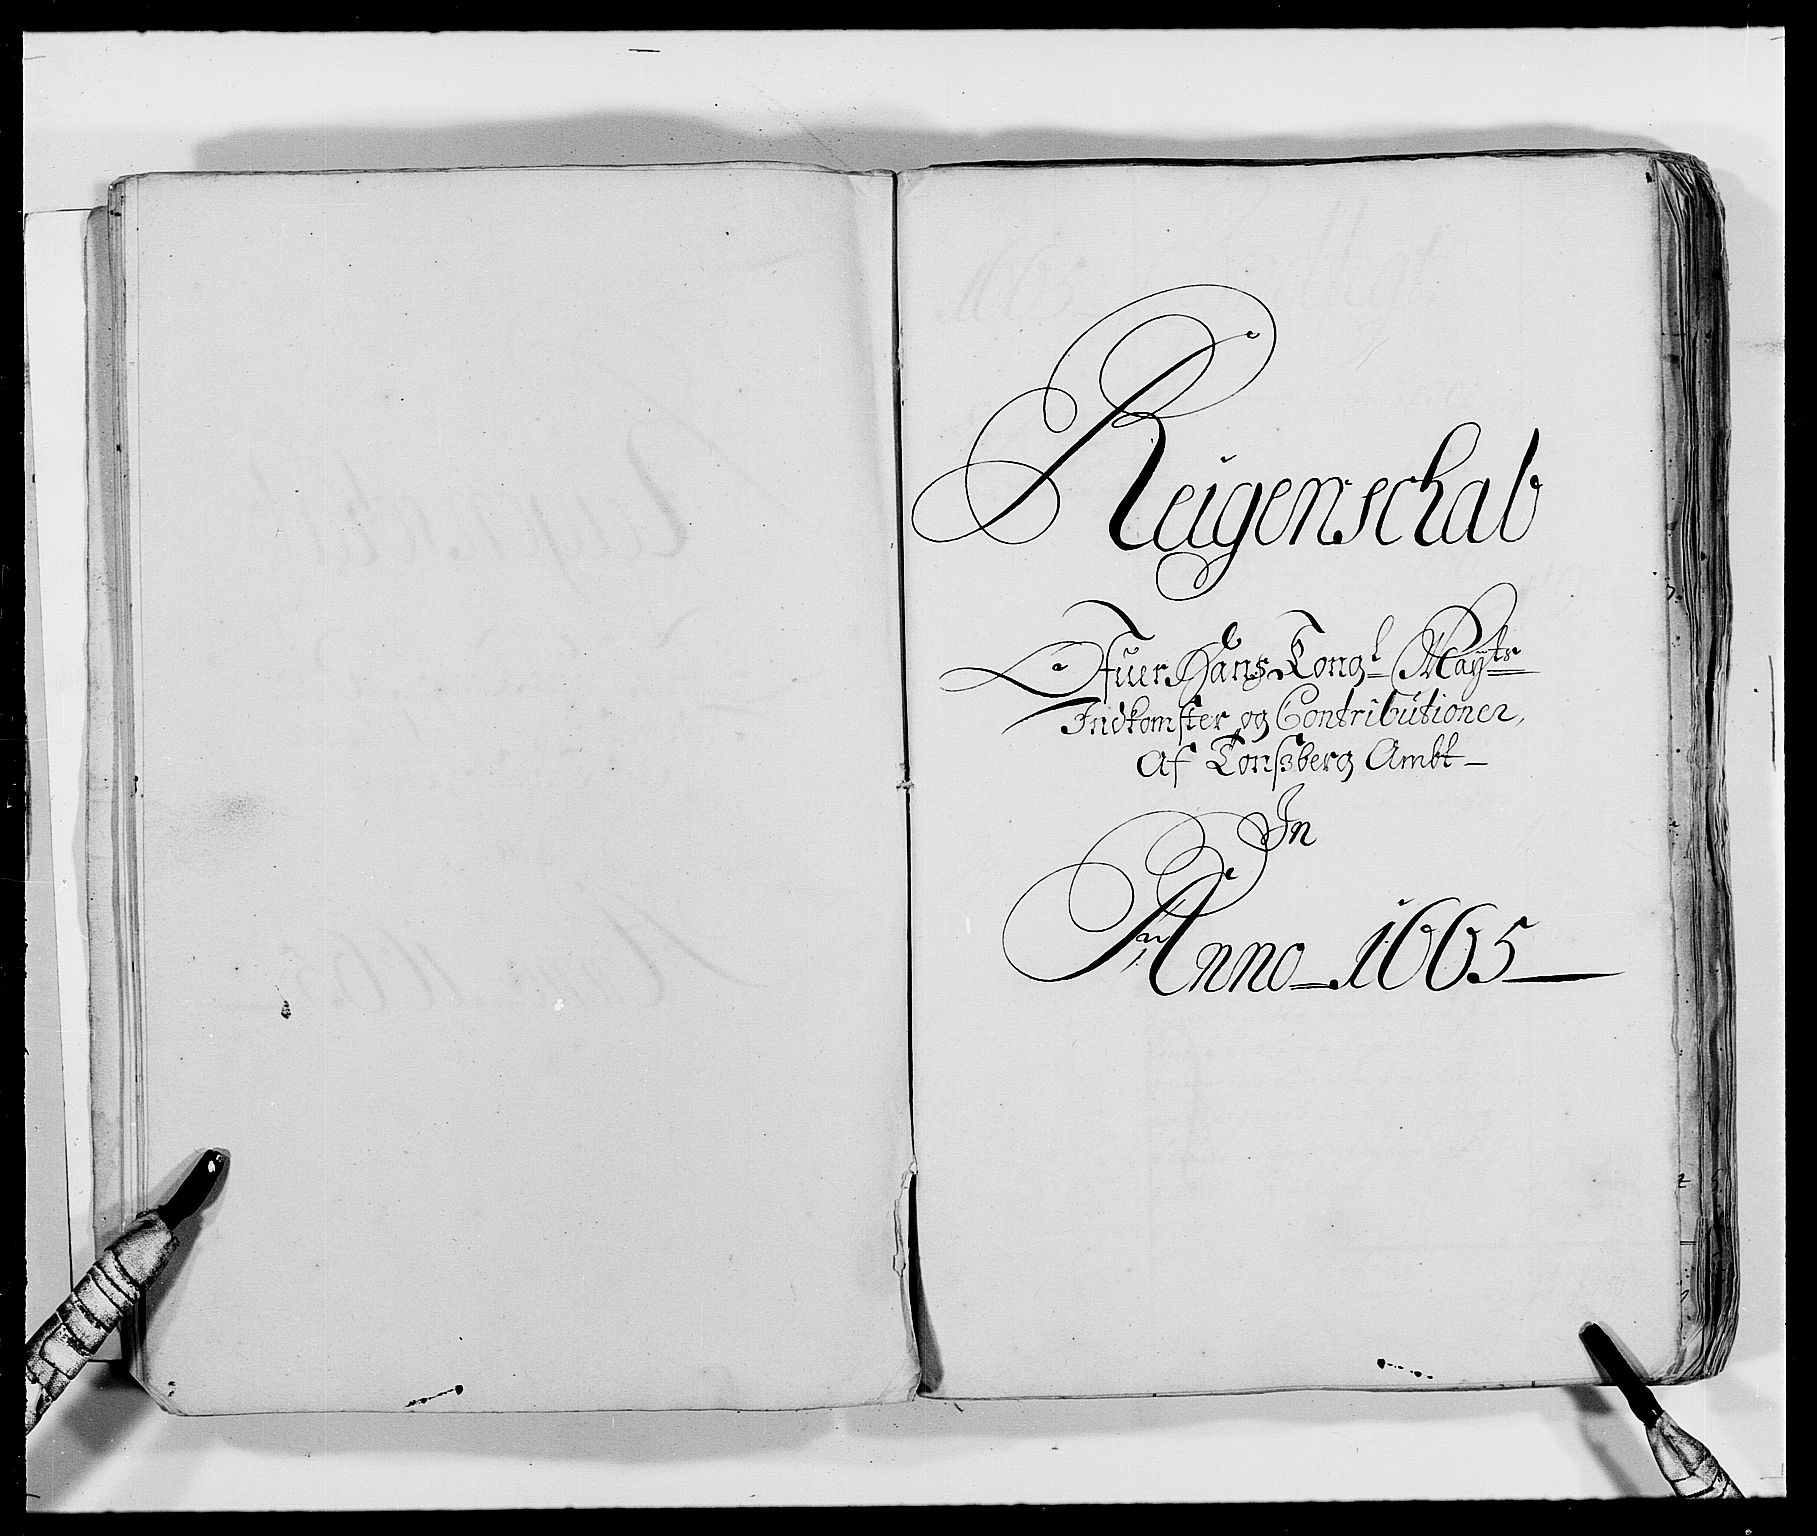 Reigenschab
Ofuer Hans Kongl Mayts
Indkomster og Contributioner,
Af Tonszberg Ambt
In
Anno 1665